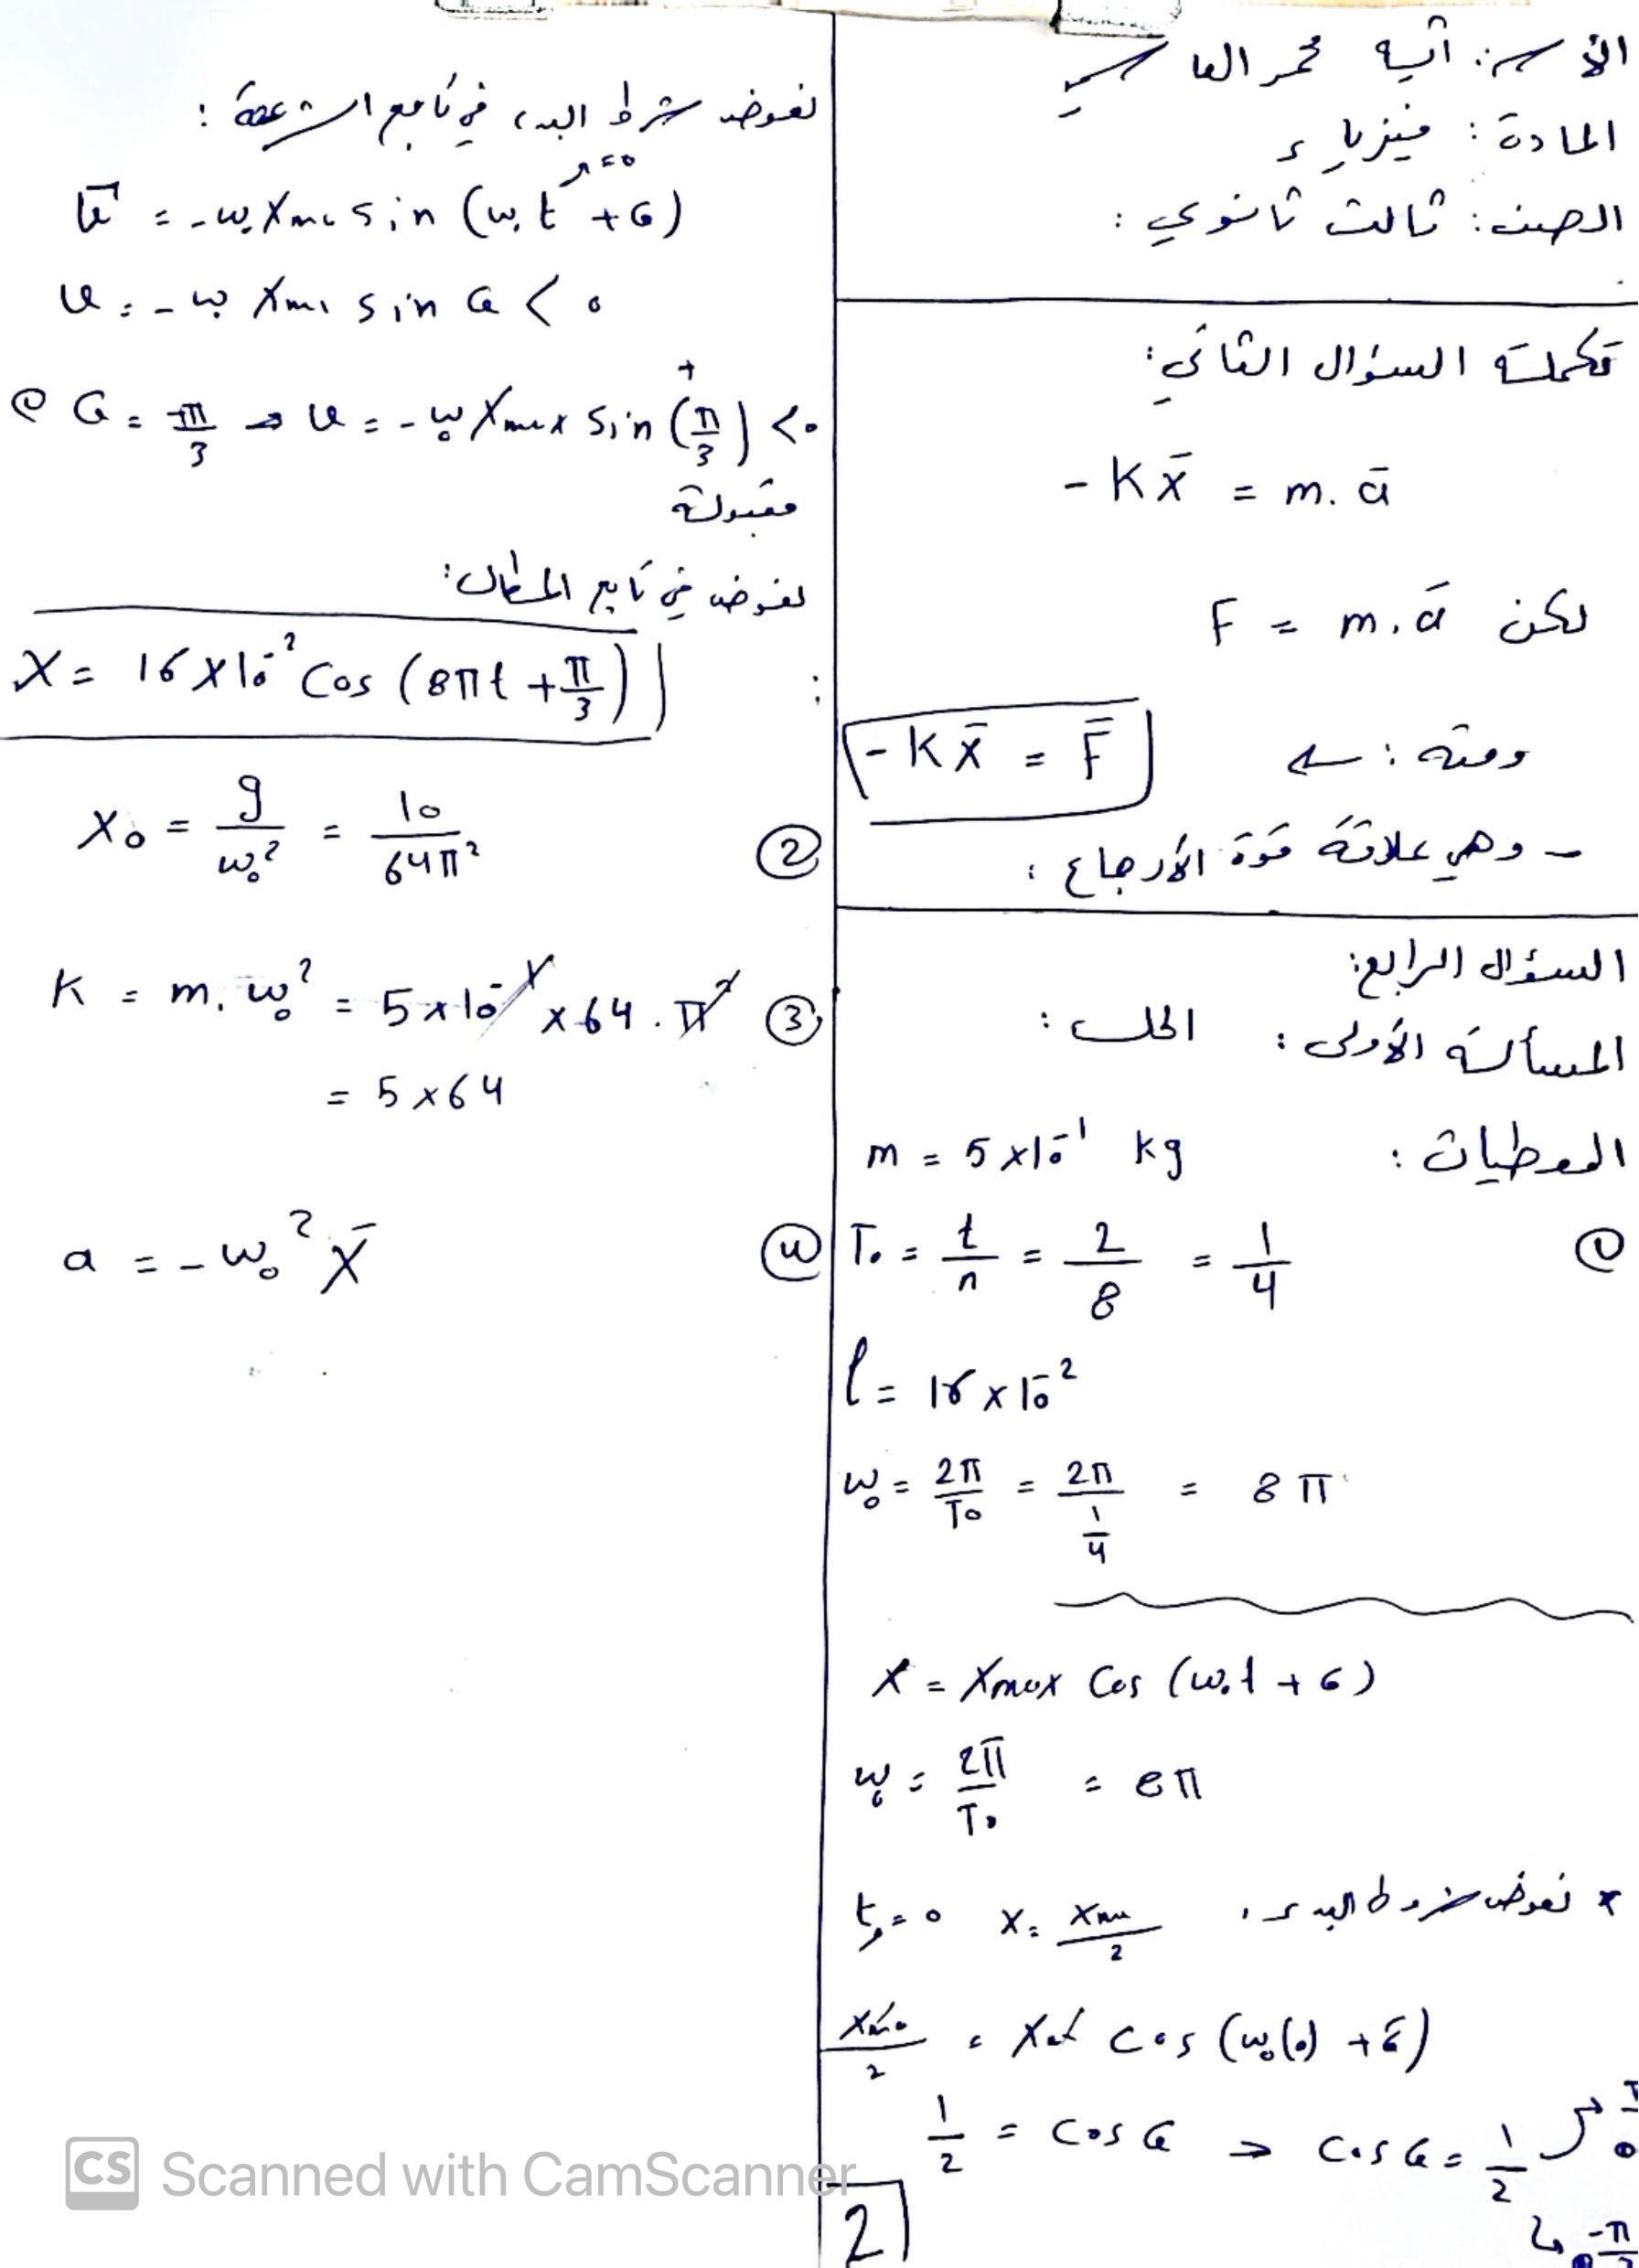 الأسم: آلية محمد العا
المادة: فيزياء
الصف: ثالث ثانوي:
تكملة السؤال الثاني:
- K x̄ = m. ā
لكن F = m. ā
ومنه: - K x̄ = F̄
- وهي علاقة قوة الأرجاع:
السؤال الرابع:
المسألة الأولى: الحل:
المعطيات: m = 5 ×10⁻¹ kg
① T₀ = t/n = 2/8 = 1/4
l = 16 × 10⁻²
ω₀ = 2π/T₀ = 2π/(1/4) = 8π
X = Xmax Cos (ω₀t + φ)
ω₀ = 2π/T₀ = 8π
* نعوض شروط البدء،
t = 0 X = Xmax/2
Xmax/2 = Xmax cos (ω₀(0) + φ̄)
1/2 = cos φ ⇒ cos φ = 1/2
-π
2
نعوض شرط البدء في تابع السرعة:
t=0
v̄ = -ω₀ Xmax sin (ω₀t + φ)
v = -ω₀ Xmax sin φ < 0
φ = π/3 ⇒ v = -ω₀ Xmax sin (π/3) < 0
+
مقبولة
نعوض في تابع المطال:
X = 16 ×10⁻² Cos (8πt + π/3)
② X₀ = g/ω₀² = 10/64π²
③ K = m. ω₀² = 5×10⁻¹ × 64 . π²
= 5 × 64
④ a = -ω₀² x̄
CS Scanned with CamScanner